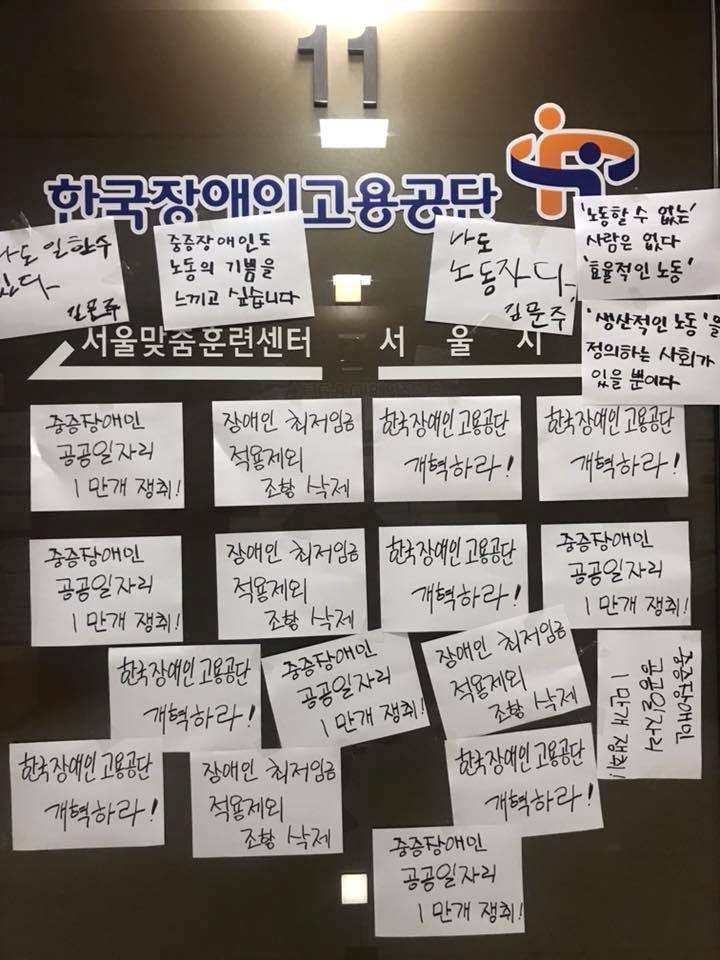 11
한국장애인고용공단
나도 일할수
있다.
김문주
중증장애인도
노동의 기쁨을
느끼고 싶습니다
나도
노동자다.
김문주
'노동할 수 없는'
사람은 없다
'효율적인 노동'
'생산적인 노동'을
정의하는 사회가
있을 뿐이다
서울맞춤훈련센터
서울시
중증장애인
공공일자리
1만개 쟁취!
장애인 최저임금
적용제외
조항 삭제
한국장애인고용공단
개혁하라!
한국장애인고용공단
개혁하라!
중증장애인
공공일자리
1만개 쟁취!
장애인 최저임금
적용제외
조항 삭제
한국장애인고용공단
개혁하라!
중증장애인
공공일자리
1만개 쟁취!
한국장애인고용공단
개혁하라!
중증장애인
공공일자리
1만개 쟁취!
장애인 최저임금
적용제외
조항 삭제
중증장애인
공공일자리
1만개 쟁취!
한국장애인고용공단
개혁하라!
장애인 최저임금
적용제외
조항 삭제
한국장애인고용공단
개혁하라!
중증장애인
공공일자리
1만개 쟁취!